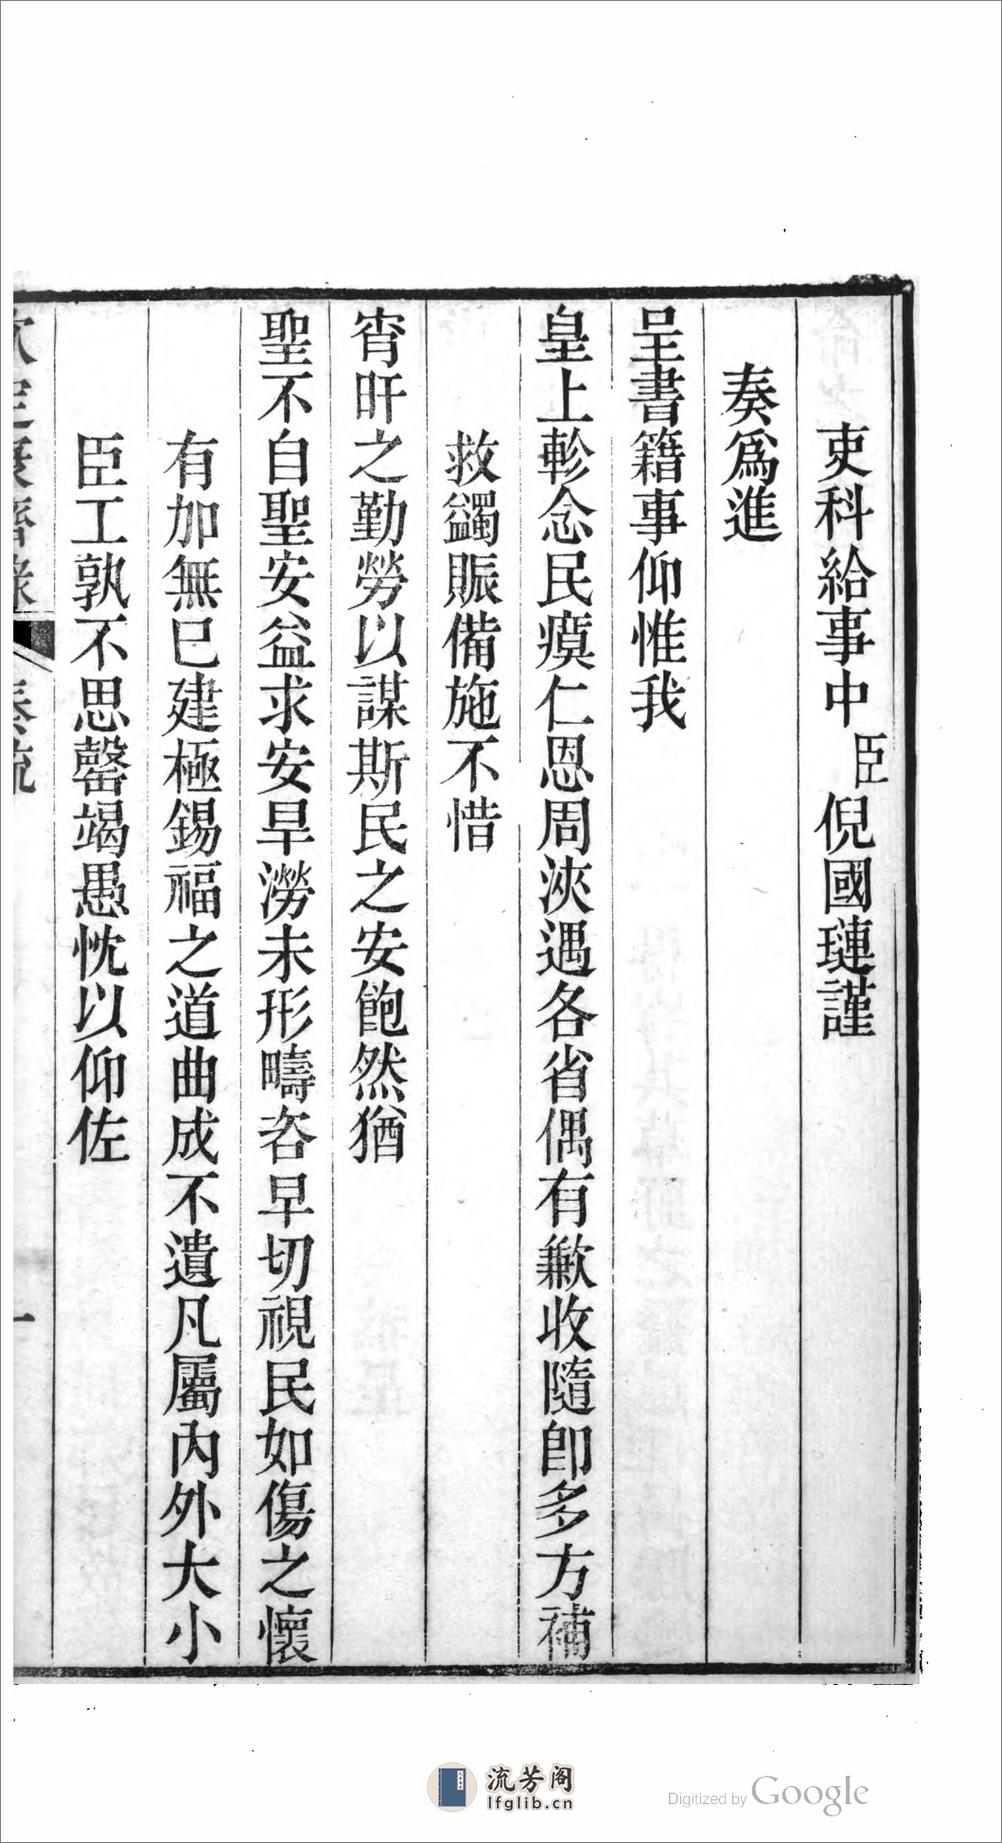 吏科給事中臣倪國璉謹
奏為進
呈書籍事仰惟我
皇上軫念民瘼仁恩周浹遇各省偶有歉收隨卽多方補
救蠲賑備施不惜
宵旰之勤勞以謀斯民之安飽然猶
聖不自聖安益求安旱澇未形疇咨早切視民如傷之懷
有加無已建極錫福之道曲成不遺凡屬內外大小
臣工孰不思罄竭愚忱以仰佐
欽定康濟錄 奏疏 一
流芳阁
lfglib.cn
Digitized by Google